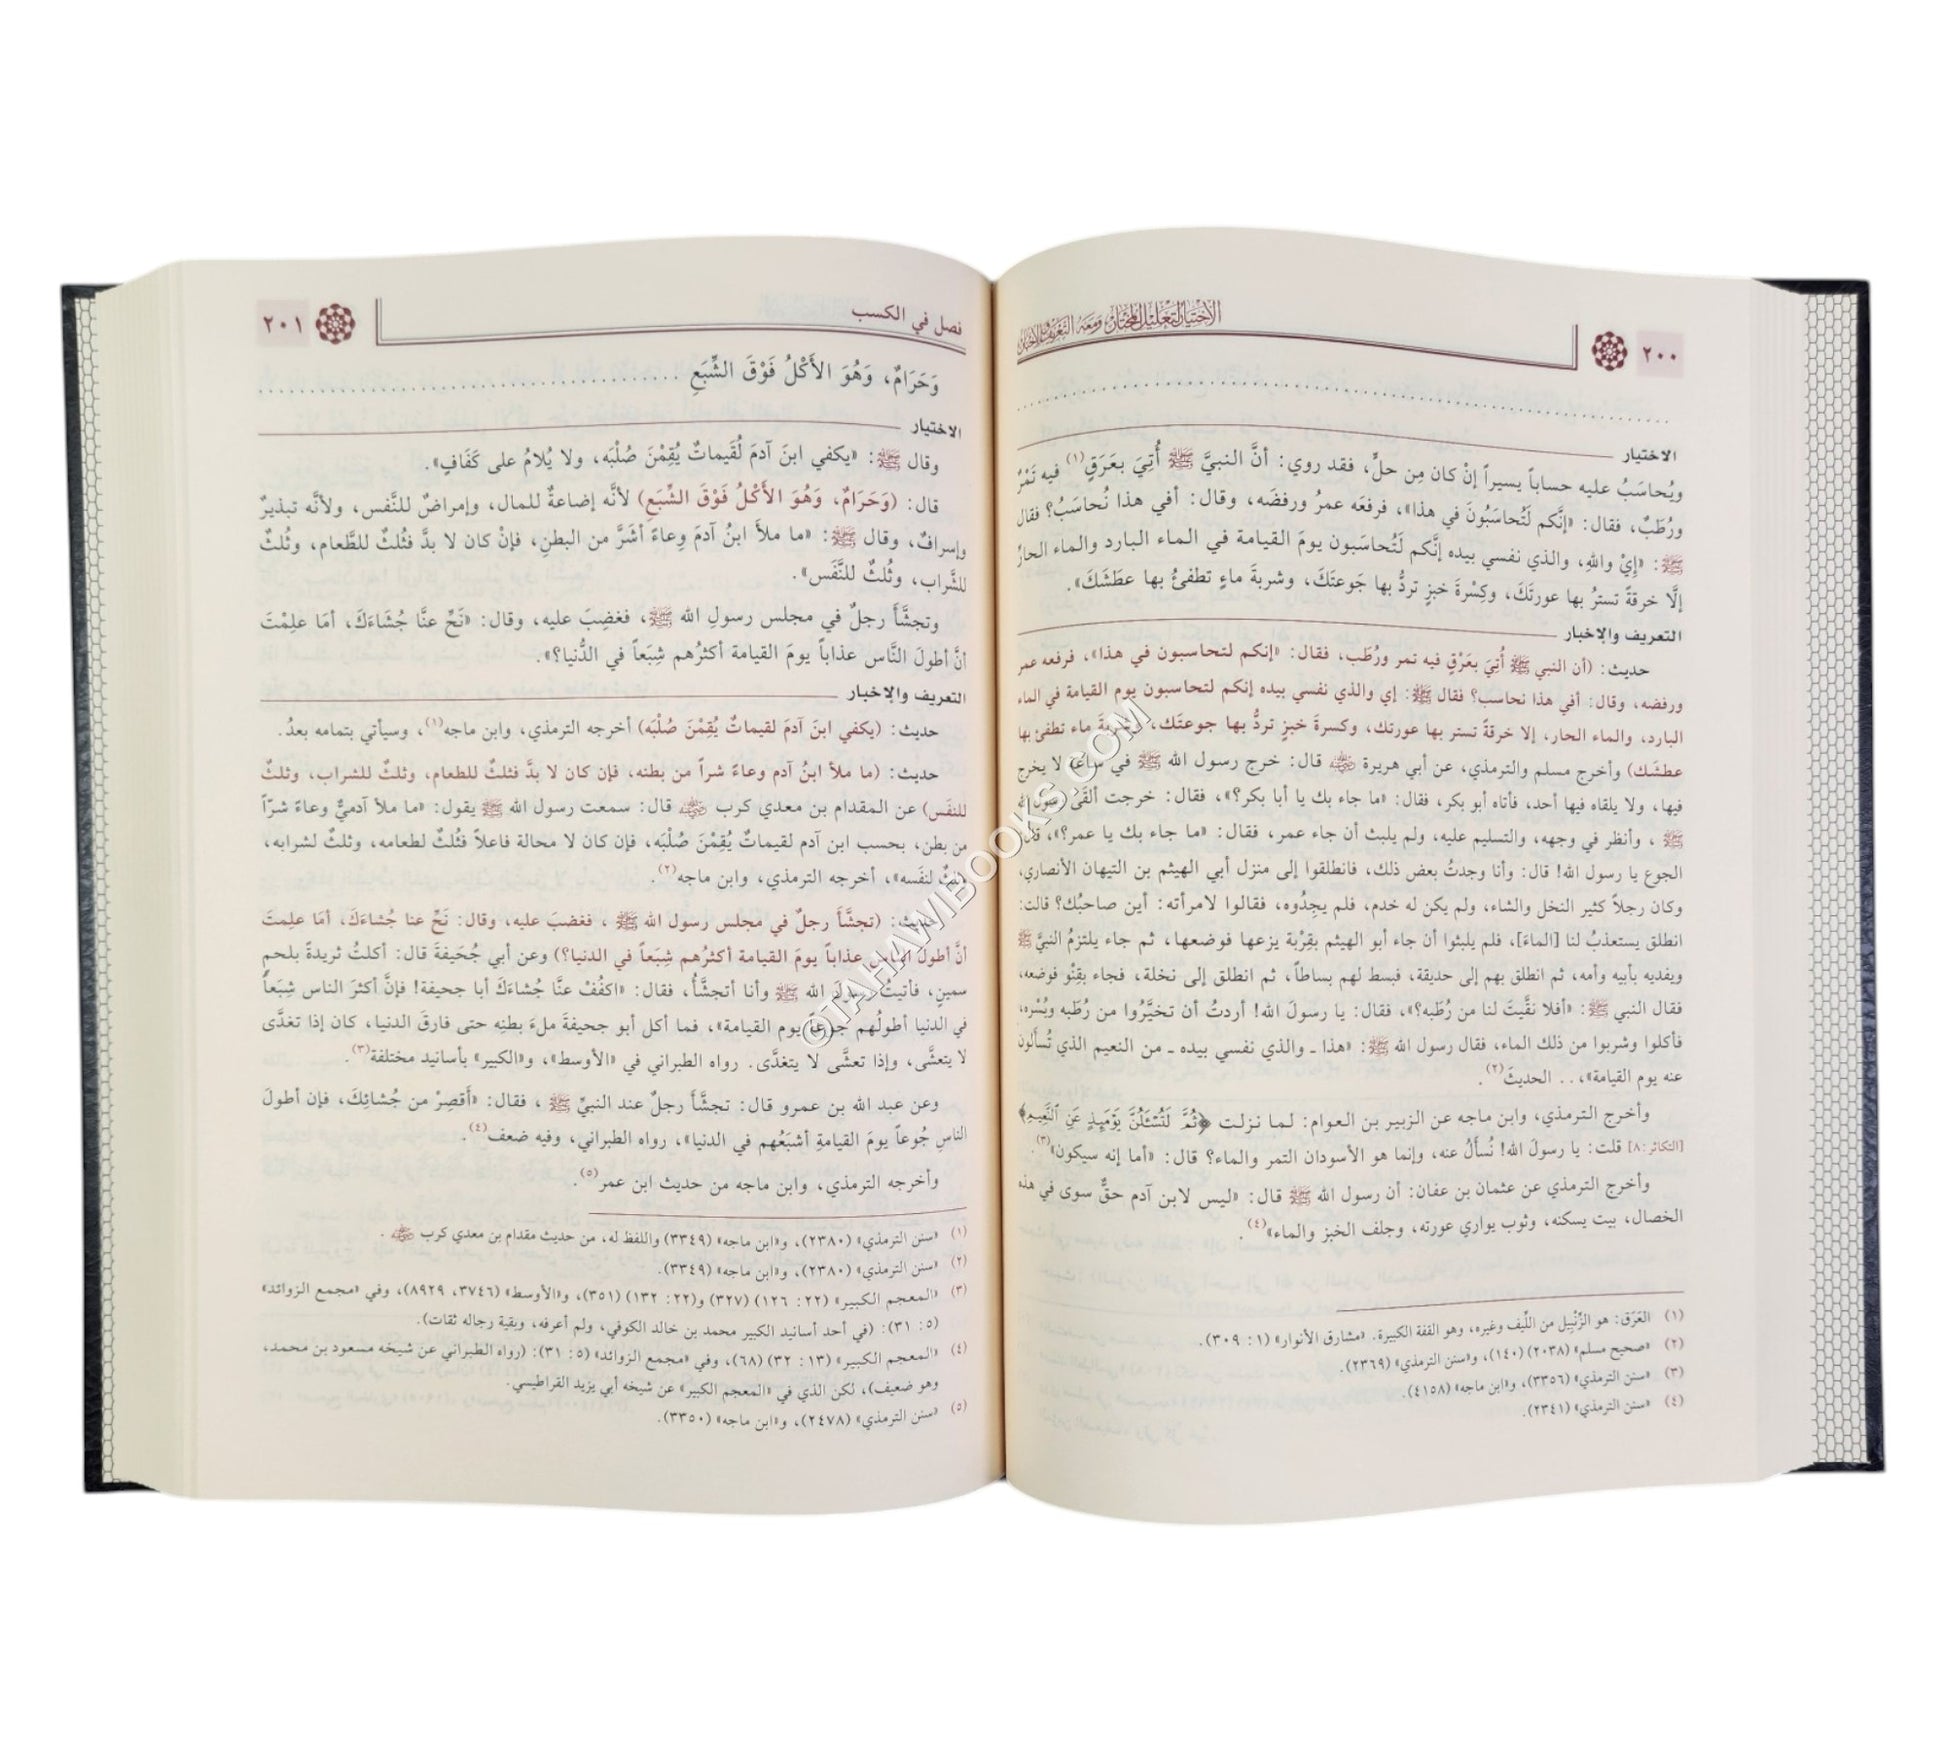 ٢٠٠
الاختيار لتعليل المختار ومعه التعريف والإخبار
الاختيار
ويُحاسَبُ عليه حساباً يسيراً إنْ كان مِن حلٍّ، فقد روي: أنَّ النبيَّ ﷺ أُتِيَ بعَرَقٍ(١) فيه تَمْرٌ
ورُطَبٌ، فقال: «إنَّكم لَتُحاسَبُونَ في هذا»، فرفعَه عمرُ ورفضَه، وقال: أفي هذا نُحاسَبُ؟ فقال
ﷺ: «إِيْ واللهِ، والذي نفسي بيده إنَّكم لَتُحاسَبون يومَ القيامة في الماء البارد والماء الحارِّ
إلَّا خرقةً تسترُ بها عورتَكَ، وكِسْرةَ خبزٍ تردُّ بها جَوعتَكَ، وشربةَ ماءٍ تطفئُ بها عطَشَكَ».
التعريف والإخبار
حديث: (أن النبي ﷺ أُتِيَ بعَرْقٍ فيه تمر ورُطَب، فقال: «إنكم لتحاسبون في هذا»، فرفعه عمر
ورفضه، وقال: أفي هذا نحاسب؟ فقال ﷺ: إي والذي نفسي بيده إنكم لتحاسبون يوم القيامة في الماء
البارد، والماء الحار، إلا خرقةً تستر بها عورتك، وكسرةَ خبزٍ تردُّ بها جوعتَك، وشربةَ ماء تطفئ بها
عطشَك) وأخرج مسلم والترمذي، عن أبي هريرة ﵁ قال: خرج رسول الله ﷺ في ساعة لا يخرج
فيها، ولا يلقاه فيها أحد، فأتاه أبو بكر، فقال: «ما جاء بك يا أبا بكر؟»، فقال: خرجت ألقَى رسول الله
ﷺ، وأنظر في وجهه، والتسليم عليه، ولم يلبث أن جاء عمر، فقال: «ما جاء بك يا عمر؟»، قال:
الجوع يا رسول الله! قال: وأنا وجدتُ بعض ذلك، فانطلقوا إلى منزل أبي الهيثم بن التيهان الأنصاري،
وكان رجلاً كثير النخل والشاء، ولم يكن له خدم، فلم يجِدُوه، فقالوا لامرأته: أين صاحبُك؟ قالت:
انطلق يستعذبُ لنا [الماءَ]، فلم يلبثوا أن جاء أبو الهيثم بقِرْبة يزعبها فوضعها، ثم جاء يلتزمُ النبيَّ ﷺ
ويفديه بأبيه وأمه، ثم انطلق بهم إلى حديقة، فبسط لهم بساطاً، ثم انطلق إلى نخلة، فجاء بقِنْو فوضعه،
فقال النبي ﷺ: «أفلا نقَّيتَ لنا من رُطَبه؟»، فقال: يا رسولَ الله! أردتُ أن تخيَّرُوا من رُطَبه وبُسْره،
فأكلوا وشربوا من ذلك الماء، فقال رسول الله ﷺ: «هذا ـ والذي نفسي بيده ـ من النعيم الذي تُسألونَ
عنه يوم القيامة»، .. الحديثَ(٢).
وأخرج الترمذي، وابن ماجه عن الزبير بن العوام: لما نزلت ﴿ثُمَّ لَتُسْـَٔلُنَّ يَوْمَئِذٍ عَنِ ٱلنَّعِيمِ﴾
[التكاثر: ٨] قلت: يا رسولَ الله! نُسأَلُ عنه، وإنما هو الأسودان التمر والماء؟ قال: «أما إنه سيكون»(٣).
وأخرج الترمذي عن عثمان بن عفان: أن رسول الله ﷺ قال: «ليس لابن آدم حقٌّ سوى في هذه
الخصال، بيت يسكنه، وثوب يواري عورته، وجلف الخبز والماء»(٤).
(١) العَرَق: هو الزَّنْبِيل من اللِّيف وغيره، وهو القفة الكبيرة. «مشارق الأنوار» (١: ٣٠٩).
(٢) «صحيح مسلم» (٢٠٣٨) (١٤٠)، و«سنن الترمذي» (٢٣٦٩).
(٣) «سنن الترمذي» (٣٣٥٦)، و«ابن ماجه» (٤١٥٨).
(٤) «سنن الترمذي» (٢٣٤١).
فصل في الكسب
٢٠١
وَحَرَامٌ، وَهُوَ الأَكْلُ فَوْقَ الشِّبَعِ
الاختيار
وقال ﷺ: «يكفي ابنَ آدمَ لُقَيماتٌ يُقِمْنَ صُلْبَه، ولا يُلامُ على كَفَافٍ».
قال: (وَحَرَامٌ، وَهُوَ الأَكْلُ فَوْقَ الشِّبَعِ) لأنَّه إضاعةٌ للمال، وإمراضٌ للنَّفس، ولأنَّه تبذيرٌ
وإسرافٌ، وقال ﷺ: «ما ملأَ ابنُ آدمَ وِعاءً أشَرَّ من البطنِ، فإنْ كان لا بدَّ فثُلثٌ للطَّعام، وثُلثٌ
للشَّراب، وثُلثٌ للنَّفَس».
وتجشَّأَ رجلٌ في مجلس رسولِ الله ﷺ، فغضِبَ عليه، وقال: «نَحِّ عنَّا جُشَاءَكَ، أمَا علِمْتَ
أنَّ أطولَ النَّاس عذاباً يومَ القيامة أكثرُهم شِبَعاً في الدُّنيا؟».
التعريف والإخبار
حديث: (يكفي ابنَ آدمَ لقيماتٌ يُقِمْنَ صُلْبَه) أخرجه الترمذي، وابن ماجه(١)، وسيأتي بتمامه بعدُ.
حديث: (ما ملأ ابنُ آدم وعاءً شراً من بطنه، فإن كان لا بدَّ فثلثٌ للطعام، وثلثٌ للشراب، وثلثٌ
للنفَس) عن المقدام بن معدي كرب ﵁ قال: سمعت رسول الله ﷺ يقول: «ما ملأ آدميٌّ وعاءً شرّاً
من بطن، بحسب ابن آدم لقيماتٌ يُقِمْنَ صُلْبَه، فإن كان لا محالة فاعلاً فثُلثٌ لطعامه، وثلثٌ لشرابه،
وثلثٌ لنفَسه»، أخرجه الترمذي، وابن ماجه(٢).
حديث: (تجشَّأَ رجلٌ في مجلس رسول الله ﷺ، فغضبَ عليه، وقال: نَحِّ عنا جُشاءَكَ، أمَا علِمتَ
أنَّ أطولَ الناس عذاباً يومَ القيامة أكثرُهم شِبَعاً في الدنيا؟) وعن أبي جُحَيفةَ قال: أكلتُ ثريدةً بلحمٍ
سمينٍ، فأتيتُ رسولَ الله ﷺ وأنا أتجشَّأُ، فقال: «اكفُفْ عنَّا جُشاءَكَ أبا جحيفة! فإنَّ أكثرَ الناس شِبَعاً
في الدنيا أطولُهم جوعاً يوم القيامة»، فما أكل أبو جحيفةَ ملءَ بطنِه حتى فارقَ الدنيا، كان إذا تغدَّى
لا يتعشَّى، وإذا تعشَّى لا يتغدَّى. رواه الطبراني في «الأوسط»، و«الكبير» بأسانيد مختلفة(٣).
وعن عبد الله بن عمرو قال: تجشَّأَ رجلٌ عند النبيِّ ﷺ، فقال: «أَقصِرْ من جُشائِكَ، فإن أطولَ
الناسِ جُوعاً يومَ القيامةِ أشبَعُهم في الدنيا»، رواه الطبراني، وفيه ضعف(٤).
وأخرجه الترمذي، وابن ماجه من حديث ابن عمر(٥).
(١) «سنن الترمذي» (٢٣٨٠)، و«ابن ماجه» (٣٣٤٩) واللفظ له، من حديث مقدام بن معدي كرب ﵁.
(٢) «سنن الترمذي» (٢٣٨٠)، و«ابن ماجه» (٣٣٤٩).
(٣) «المعجم الكبير» (٢٢: ١٢٦) (٣٢٧) و(٢٢: ١٣٢) (٣٥١)، و«الأوسط» (٣٧٤٦، ٨٩٢٩)، وفي «مجمع الزوائد»
(٥: ٣١): (في أحد أسانيد الكبير محمد بن خالد الكوفي، ولم أعرفه، وبقية رجاله ثقات).
(٤) «المعجم الكبير» (١٣: ٣٢) (٦٨)، وفي «مجمع الزوائد» (٥: ٣١): (رواه الطبراني عن شيخه مسعود بن محمد،
وهو ضعيف)، لكن الذي في «المعجم الكبير» عن شيخه أبي يزيد القراطيسي.
(٥) «سنن الترمذي» (٢٤٧٨)، و«ابن ماجه» (٣٣٥٠).
©TAHAWIBOOKS.COM